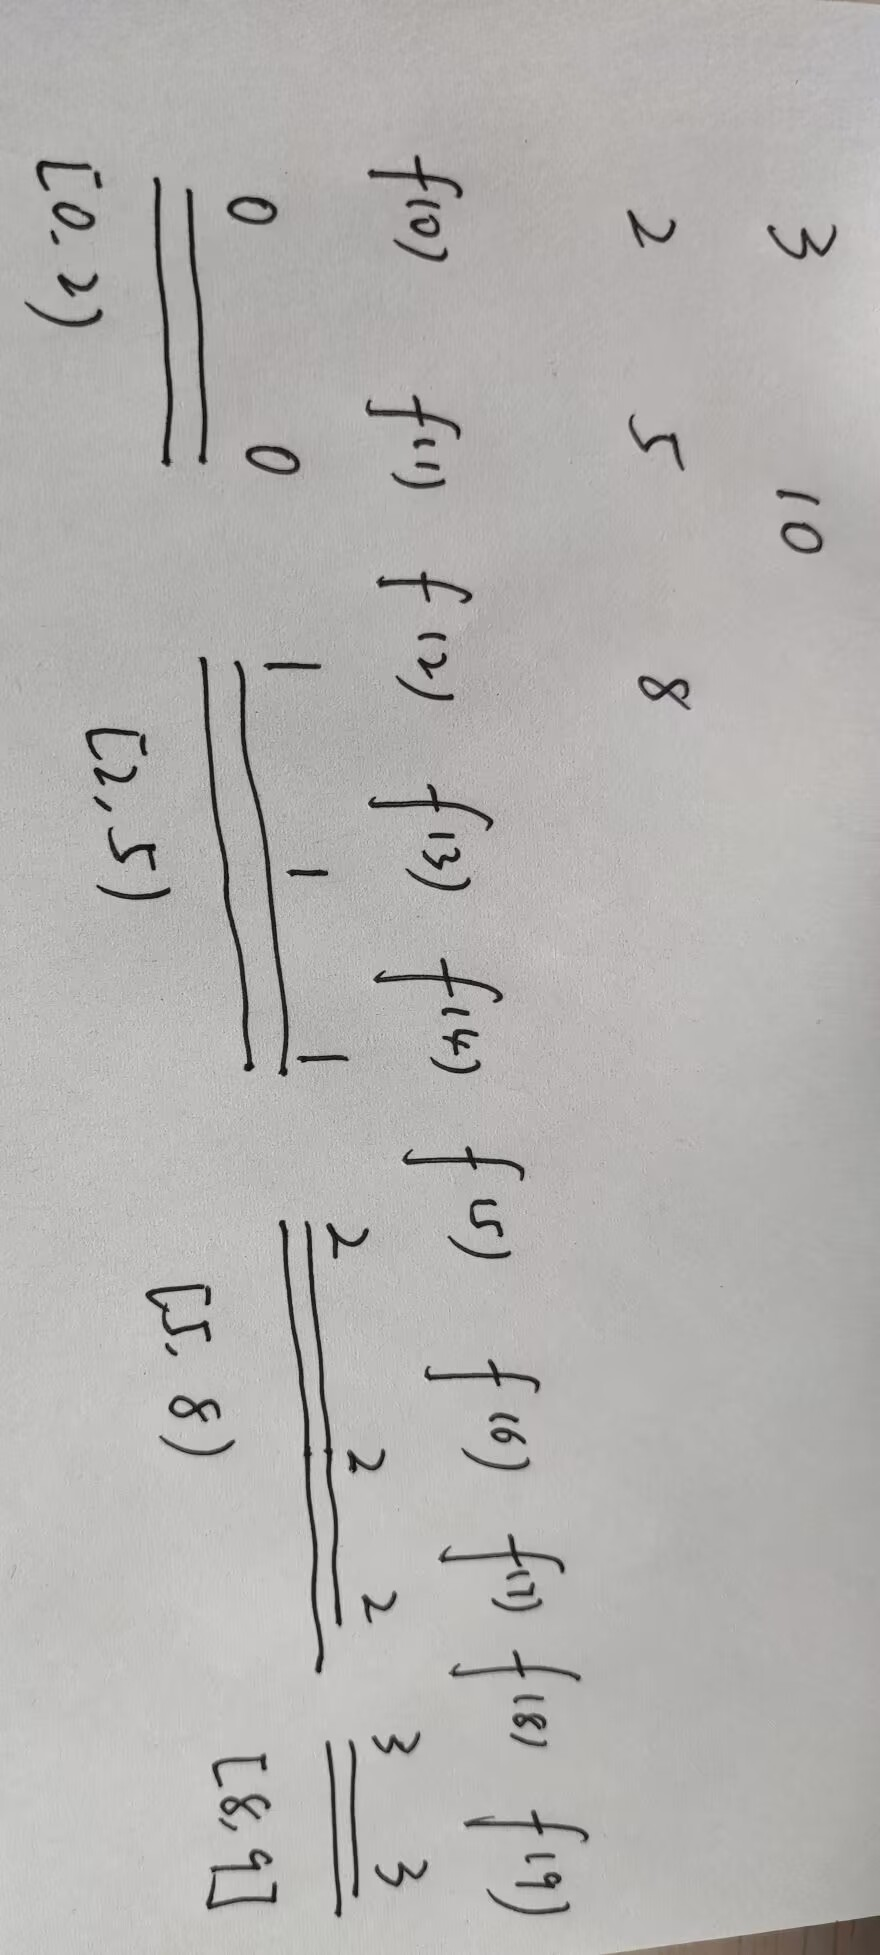 3 10
2 5 8
f(0) f(1) f(2) f(3) f(4) f(5) f(6) f(7) f(8) f(9)
0 0 1 1 1 2 2 2 3 3
[0, 2) [2, 5) [5, 8) [8, 9]